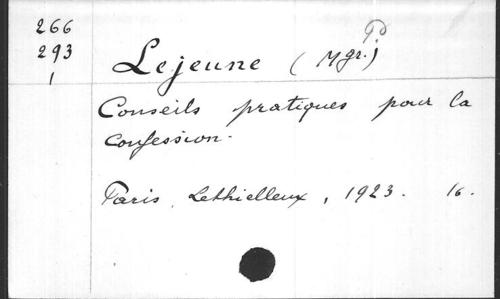 266
293
1
Lejeune (Mgr. P)
Conseils pratiques pour la
confession.
Paris, Lethielleux, 1923. 16.